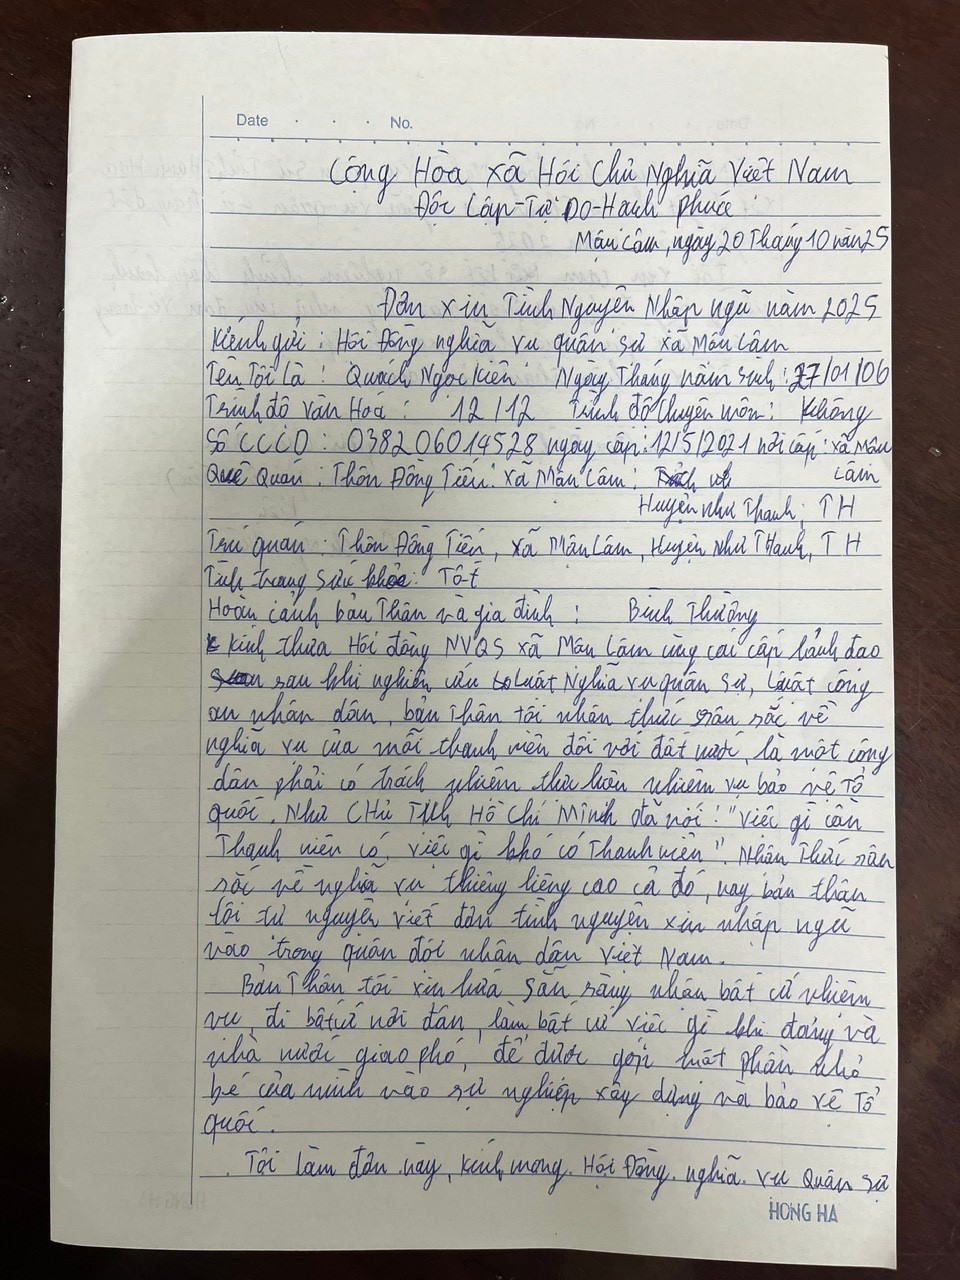 Date No.
Cộng Hòa xã Hội Chủ Nghĩa Việt Nam
Độc Lập-Tự Do-Hạnh phúc
Mậu Lâm, ngày 20 Tháng 10 năm 25
Đơn xin Tình Nguyện Nhập ngũ năm 2025
Kính gửi : Hội Đồng nghĩa vụ quân sự xã Mậu Lâm
Tên Tôi là : Quách Ngọc Kiên Ngày Tháng năm sinh : 27/01/06
Trình độ văn Hoá : 12/12 Trình độ Chuyên môn : Không
Số CCCD : 038206014528 ngày cấp : 12/5/2021 nơi cấp : xã Mậu
Lâm
Quê Quán : Thôn Đồng Tiến : xã Mậu Lâm ;
Huyện Như Thanh, TH
Trú quán : Thôn Đồng Tiến, xã Mậu Lâm, Huyện Như THanh, TH
Tình trạng sức khỏe : Tốt
Hoàn cảnh bản Thân và gia đình : Bình Thường
Kính thưa Hội đồng NVQS xã Mậu Lâm cùng các cấp lãnh đạo
sau khi nghiên cứu Luật Nghĩa vụ quân sự, Luật công
an nhân dân, bản Thân tôi nhận thức sâu sắc về
nghĩa vụ của mỗi thanh niên đối với đất nước, là một công
dân phải có trách nhiệm thực hiện nhiệm vụ bảo vệ Tổ
quốc. Như CHủ Tịch Hồ Chí Minh đã nói : "việc gì cần
Thanh niên có, việc gì khó có Thanh niên". Nhận Thức sâu
sắc về nghĩa vụ thiêng liêng cao cả đó, nay bản thân
tôi tự nguyện viết đơn tình nguyện xin nhập ngũ
vào trong quân đội nhân dân Việt Nam.
Bản Thân tôi xin hứa sẵn sàng nhận bất cứ nhiệm
vụ, đi bất cứ nơi đâu, làm bất cứ việc gì khi đảng và
nhà nước giao phó, để được góp một phần nhỏ
bé của mình vào sự nghiệp xây dựng và bảo vệ Tổ
quốc.
Tôi làm đơn này, kính mong Hội Đồng nghĩa vụ Quân sự
HONG HA